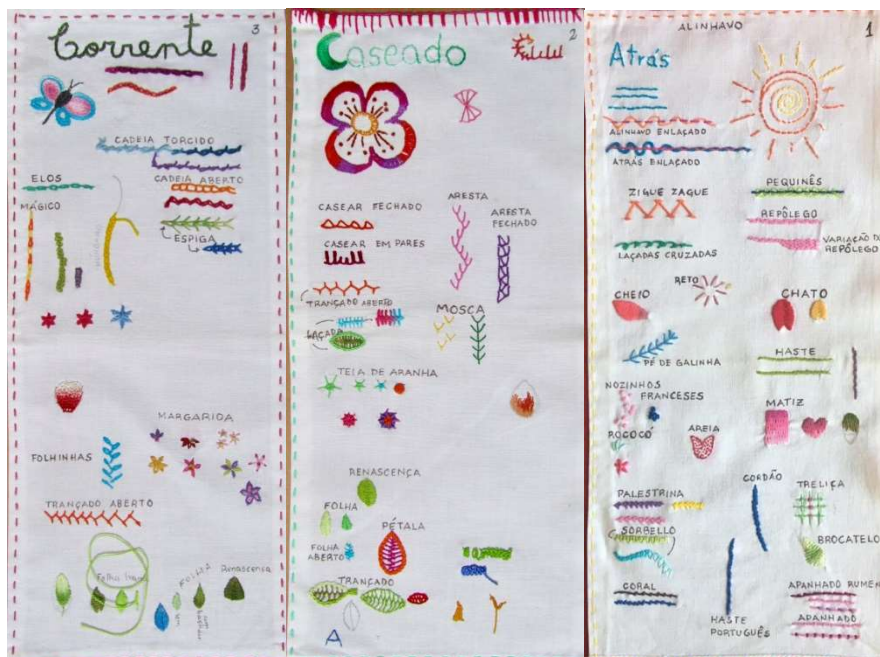 Corrente
3
CADEIA TORCIDO
ELOS
CADEIA ABERTO
MÁGICO
ESPIGA
MARGARIDA
FOLHINHAS
TRANÇADO ABERTO
FOLHA
Renascença
Caseado
2
CASEAR FECHADO
ARESTA
ARESTA
FECHADO
CASEAR EM PARES
TRANÇADO ABERTO
MOSCA
LAÇADA
TEIA DE ARANHA
RENASCENÇA
FOLHA
PÉTALA
FOLHA
ABERTO
TRANÇADO
A
ALINHAVO
1
Atrás
ALINHAVO ENLAÇADO
ATRÁS ENLAÇADO
ZIGUE ZAGUE
PEQUINÊS
REPÔLEGO
VARIAÇÃO DE
REPÔLEGO
LAÇADAS CRUZADAS
RETO
CHEIO
CHATO
PÉ DE GALINHA
HASTE
NOZINHOS
FRANCESES
MATIZ
ROCOCÓ
AREIA
PALESTRINA
CORDÃO
TRELIÇA
SORBELLO
BROCATELO
CORAL
HASTE
PORTUGUÊS
APANHADO RUMEN
APANHADO